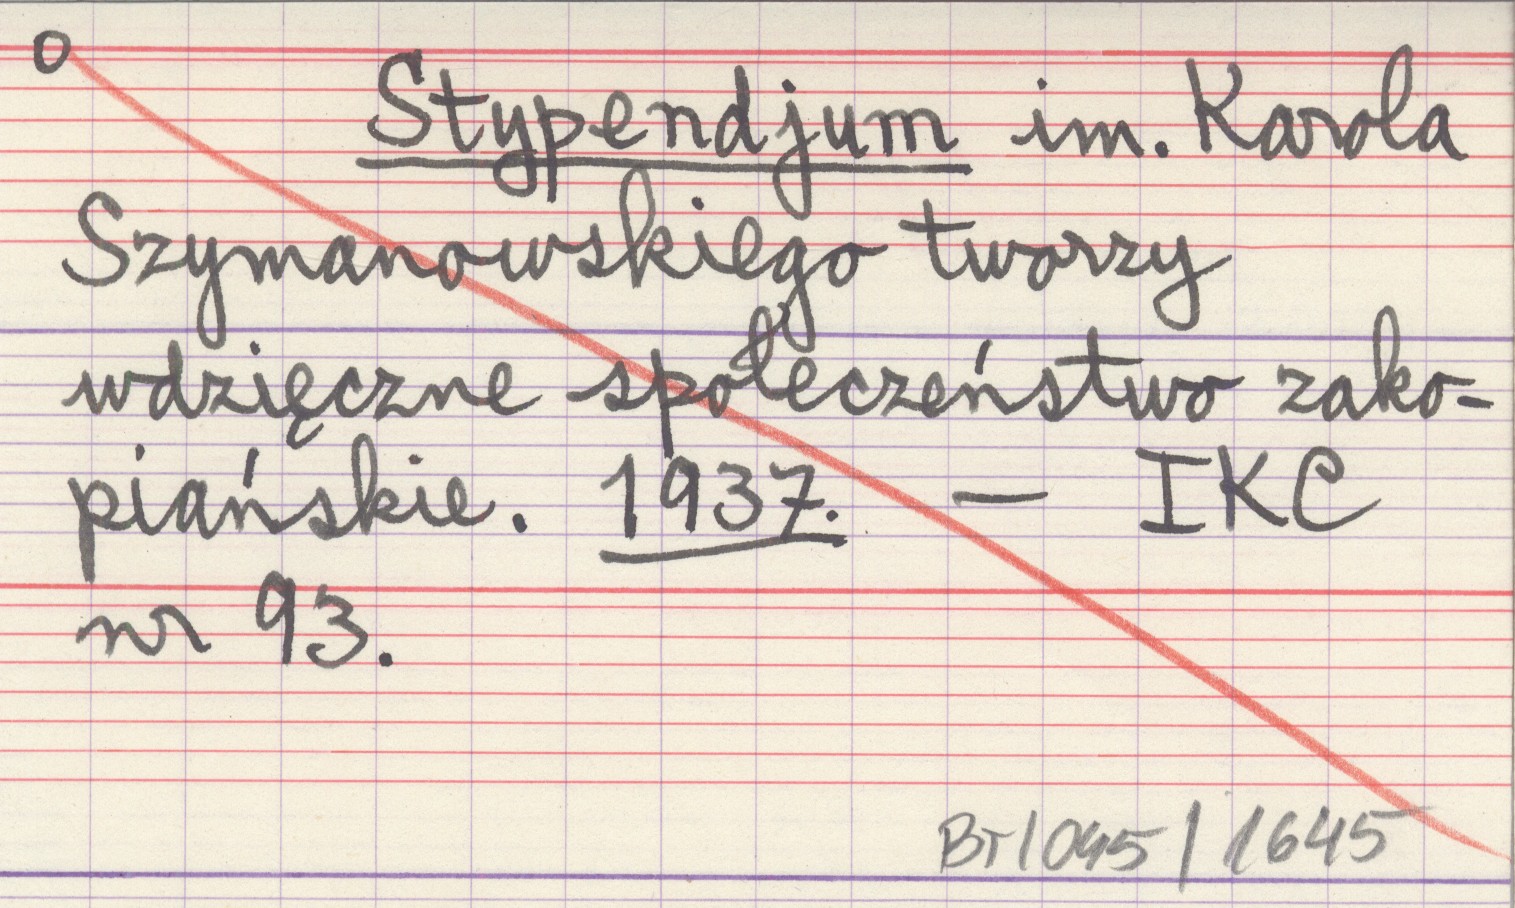 o
Stypendjum im. Karola
Szymanowskiego tworzy
wdzięczne społeczeństwo zako-
piańskie. 1937. — IKC
nr 93.
BT1045/1645